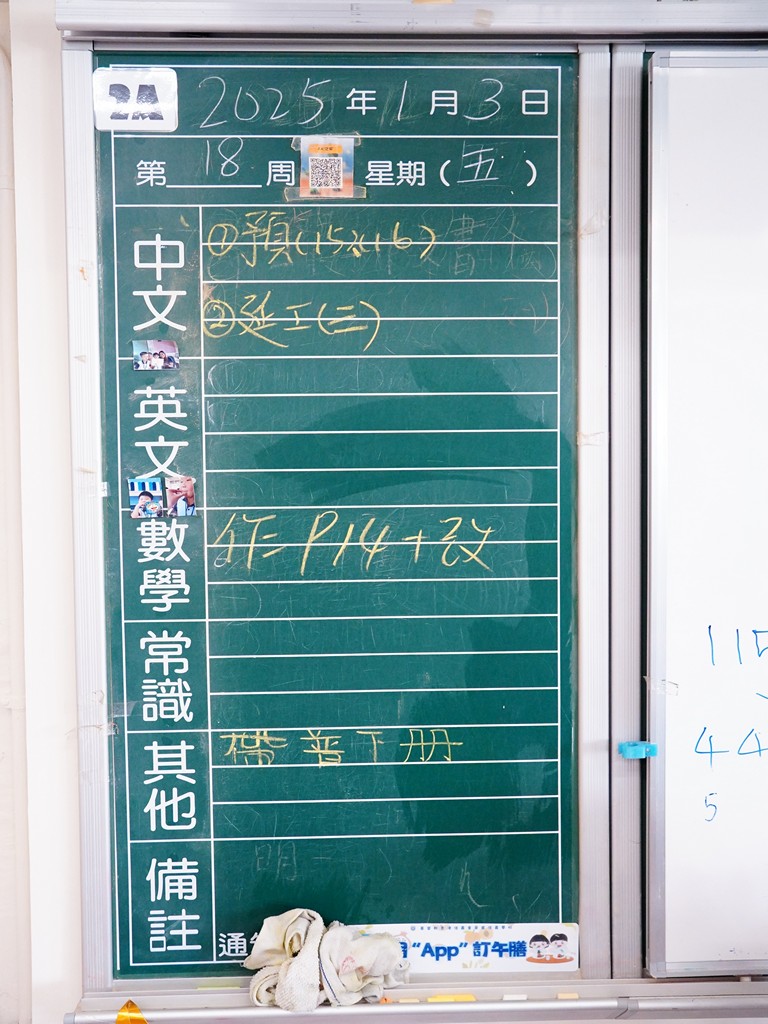 2A
2025 年 1 月 3 日
第 18 周 星期 ( 五 )
中文
①預(15)(16)
②延工(三)
英文
數學
作二 P14+改
常識
其他
帶 普 下 册
備註
通
用 “App” 訂午膳
115
44
5